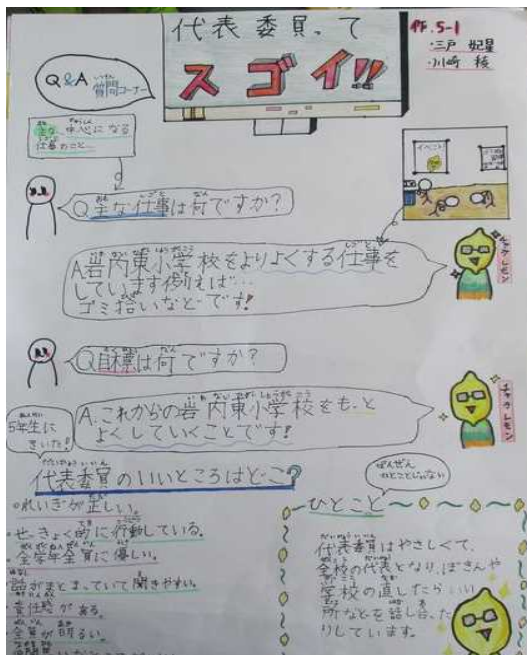 代表委員って
スゴイ!!
作.5-1
・三戸 妃星
・川崎 稜
Q&A
質問コーナー
主な、中心になる
仕事のこと…
イベント
Q.主な仕事は何ですか?
A.岩内東小学校をよりよくする仕事を
しています例えば…
ゴミ拾いなどです!
チャテレモン
Q.目標は何ですか?
A.これからの岩内東小学校をもっと
よくしていくことです!
チャテレモン
5年生に
きいた!
代表委員のいいところはどこ?
・れいぎが正しい。
・せっきょく的に行動している。
・全学年全員に優しい。
・話がまとまっていて聞きやすい。
・責任感がある。
・全員が明るい。
ぜんぜん
ひとことじゃない
ひとこと
代表委員はやさしくて、
全校の代表となり、ぼきんや
学校の直したらいい
所などを話し合った
りしています。